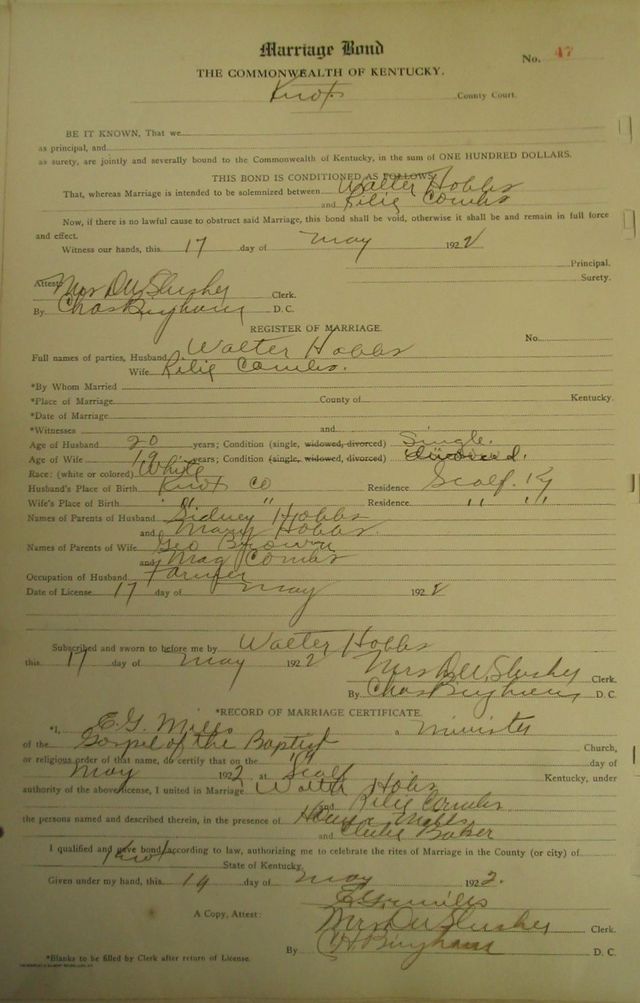 Marriage Bond
No. 47
THE COMMONWEALTH OF KENTUCKY.
Knox County Court.
BE IT KNOWN, That we
as principal, and
as surety, are jointly and severally bound to the Commonwealth of Kentucky, in the sum of ONE HUNDRED DOLLARS.
THIS BOND IS CONDITIONED AS FOLLOWS:
That, whereas Marriage is intended to be solemnized between Walter Hobbs
and Rilie Combs
Now, if there is no lawful cause to obstruct said Marriage, this bond shall be void, otherwise it shall be and remain in full force
and effect.
Witness our hands, this 17 day of May 1922
Principal.
Surety.
Attest: Mrs D W Slusher Clerk.
By Chas Bingham D. C.
REGISTER OF MARRIAGE.
No.
Full names of parties, Husband Walter Hobbs
Wife Rilie Combs.
*By Whom Married
*Place of Marriage County of Kentucky.
*Date of Marriage
*Witnesses and
Age of Husband 20 years; Condition (single, widowed, divorced) Single.
Age of Wife 19 years; Condition (single, widowed, divorced) divorced.
Race: (white or colored) White
Husband's Place of Birth Knox Co Residence Scalf. Ky
Wife's Place of Birth " " Residence " "
Names of Parents of Husband Sidney Hobbs
and Mary Hobbs.
Names of Parents of Wife Geo Brown
and Mag Combs
Occupation of Husband Farmer
Date of License 17 day of May 1922
Subscribed and sworn to before me by Walter Hobbs
this 17 day of May 1922
Mrs D W Slusher Clerk.
By Chas Bingham D. C.
*RECORD OF MARRIAGE CERTIFICATE.
*I, E. G. Mills, Minister
of the Gospel of the Baptist Church,
or religious order of that name, do certify that on the 19 day of
May 1922 at Scalf Kentucky, under
authority of the above license, I united in Marriage Walter Hobs
and Rilie Combs
the persons named and described therein, in the presence of Mills
and Baker
I qualified and gave bond according to law, authorizing me to celebrate the rites of Marriage in the County (or city) of
Knox State of Kentucky
Given under my hand, this 19 day of May 1922.
E. G. Mills
A Copy, Attest: Mrs D W Slusher Clerk.
By C H Bingham D. C.
*Blanks to be filled by Clerk after return of License.